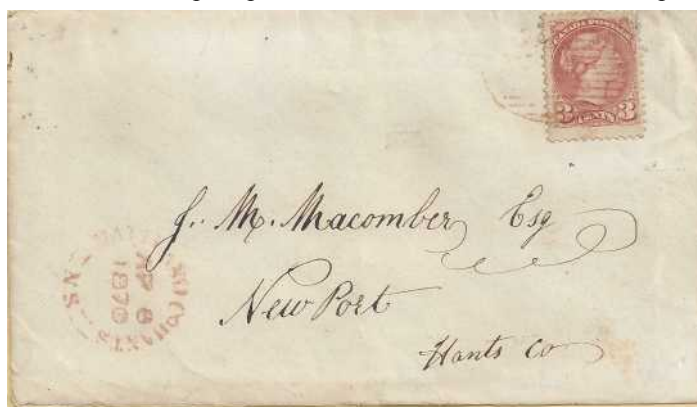 CANADA POSTAGE
3 CENTS 3
J. M. Macomber Esq
New Port
Hants Co
AP 6
1870
HANTS
N.S